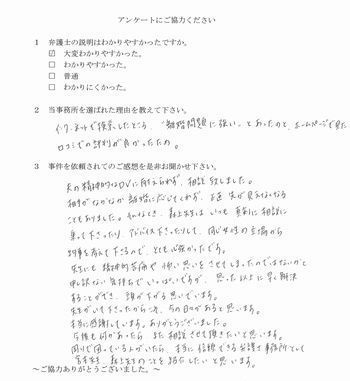 アンケートにご協力ください
1 弁護士の説明はわかりやすかったですか。
☑ 大変わかりやすかった。
□ わかりやすかった。
□ 普通
□ わかりにくかった。
2 当事務所を選ばれた理由を教えて下さい。
インターネットで検索したところ、"離婚問題に強い"とあったのと、ホームページで見た
口コミでの評判が良かったため。
3 事件を依頼されてのご感想を是非お聞かせ下さい。
夫の精神的なDVに耐えられず、相談致しました。
相手がなかなか離婚に応じてくれず、先が見えなくなる
こともありました。そんなとき、先生はいつも真剣に相談に
乗って下さったり、アドバイス下さったりして、同じ女性の立場から
物事を考えて下さるので、とても心強かったです。
先生にも精神的苦痛や怖い思いをさせてしまったのではないかと
申し訳ない気持ちでいっぱいですが、思った以上に早く解決
することができ、頭が下がる思いでいます。
先生がいて下さったから、今の日々があると思います。
本当に感謝しています。ありがとうございました。
今後も何かあったら、また相談させて頂きたいと思います。
周りで困っている人がいたら、本当に信頼できる弁護士事務所として
先生のことを紹介したいと思います。
～ご協力ありがとうございました。～